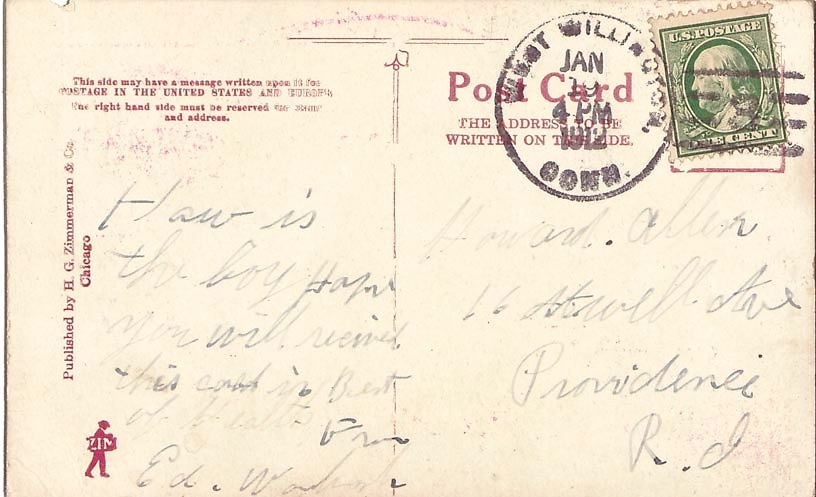 This side may have a message written upon it for
POSTAGE IN THE UNITED STATES AND EUROPE
The right hand side must be reserved for stamp
and address.
Published by H. G. Zimmerman & Co.
Chicago
ZIM
How is
the boy Hope
you will recived
this card in Best
of health
From
Ed.
Post Card
THE ADDRESS TO BE
WRITTEN ON THIS SIDE.
WEST WILLINGTON,
JAN
4 PM
1912
CONN.
U.S. POSTAGE
ONE CENT
Howard. Allen
16 Ave
Providence
R. I